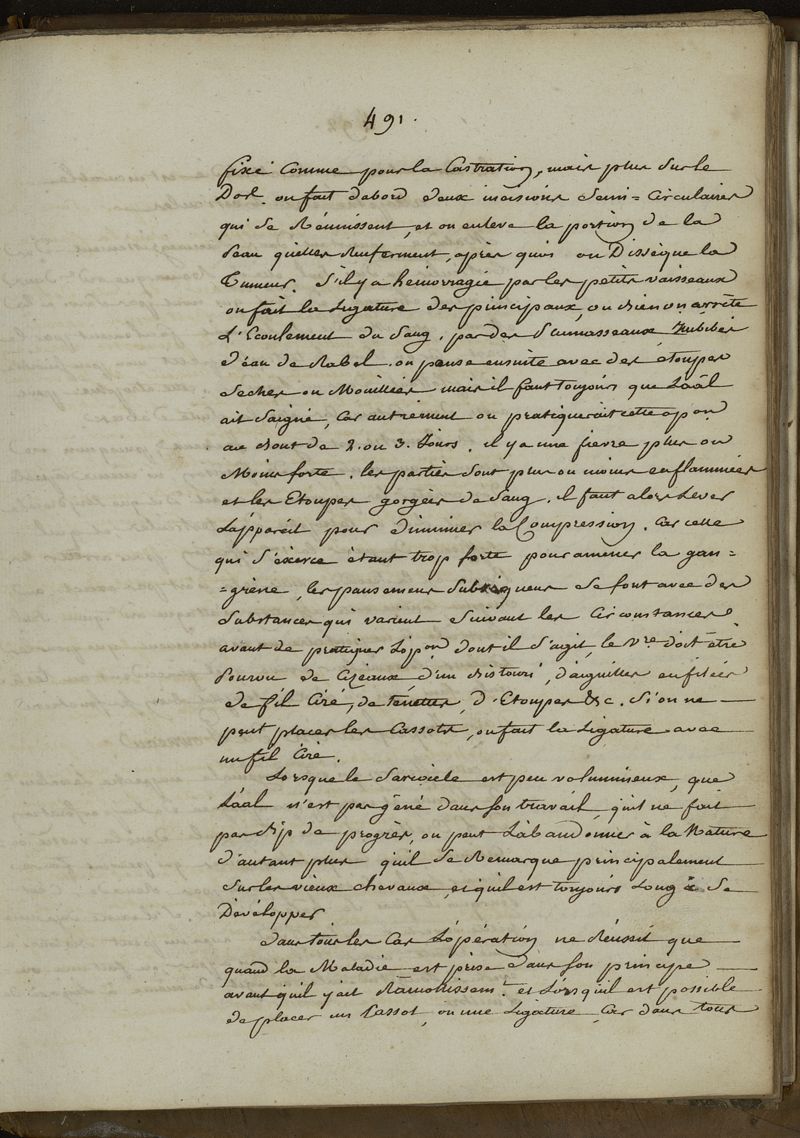 491.
fixé Comme pour la Castration, mais plus Sur le
Dos. on fait d'abord deux incisions Semi=Circulaires
qui Se Réunissent, et on enleve la portion de la
peau qu'elles Renferment, après quoi on Dissèque la
Tumeur. S'il y a hémorragie par les petits vaisseaux
on fait la Ligature des principaux, ou bien on arrête
L'Ecoulement du Sang, par des Plumasseaux Imbibés
d'eau de Rabel. on panse ensuite avec des étoupes
Seches ou Mouillées mais il faut toujours que L'aâl
ait Saigné, Car autrement on pratiquerait cette opon
au bout de 2. ou 3. Jours. il y a une fievre plus ou
Moins forte. les parties Sont plus ou moins enflammées
et les Etoupes gorgées de Sang. il faut alors Lever
L'appareil pour diminuer la Compression. Car celle
qui S'éxerce étant trop forte pour amener la gan=
=grène, les pansemens Subséquens Se font avec des
Substances qui varient Suivant les Circonstances
avant de pratiquer L'opon dont il S'agit, le Vre doit être
Pourvu de Cizeaux, d'un bistouri, d'aiguilles enfilées
de fil Ciré, de tenettes, d'Etoupes &c. Si on ne
peut placer les Cassots, on fait la Ligature avec
un fil Ciré.
Lorsque le Sarcocele est peu volumineux, que
L'aâl n'est pas gêné dans Son travail, qu'il ne fait
pas de progrès, on peut L'abandonner à la Nature
d'autant plus qu'il Se Remarque principalement
Sur les vieux chevaux, et qu'il est toujours Long à Se
Développer.
Dans tous les Cas L'opération ne Réussit que
quand la Maladie est prise dans Son principe
avant qu'il y ait Ramollissemt. et Lorsqu'il est possible
de placer un Cassot, ou une Ligature, Car dans tous